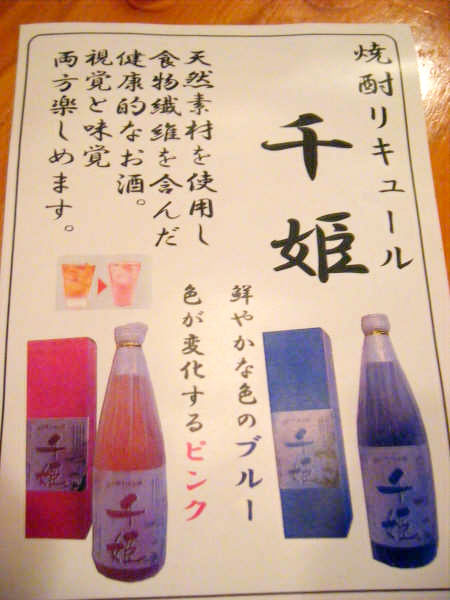 焼酎リキュール
千姫
天然素材を使用し
食物繊維を含んだ
健康的なお酒。
視覚と味覚
両方楽しめます。
鮮やかな色のブルー
色が変化するピンク
千姫
千姫
千姫
千姫